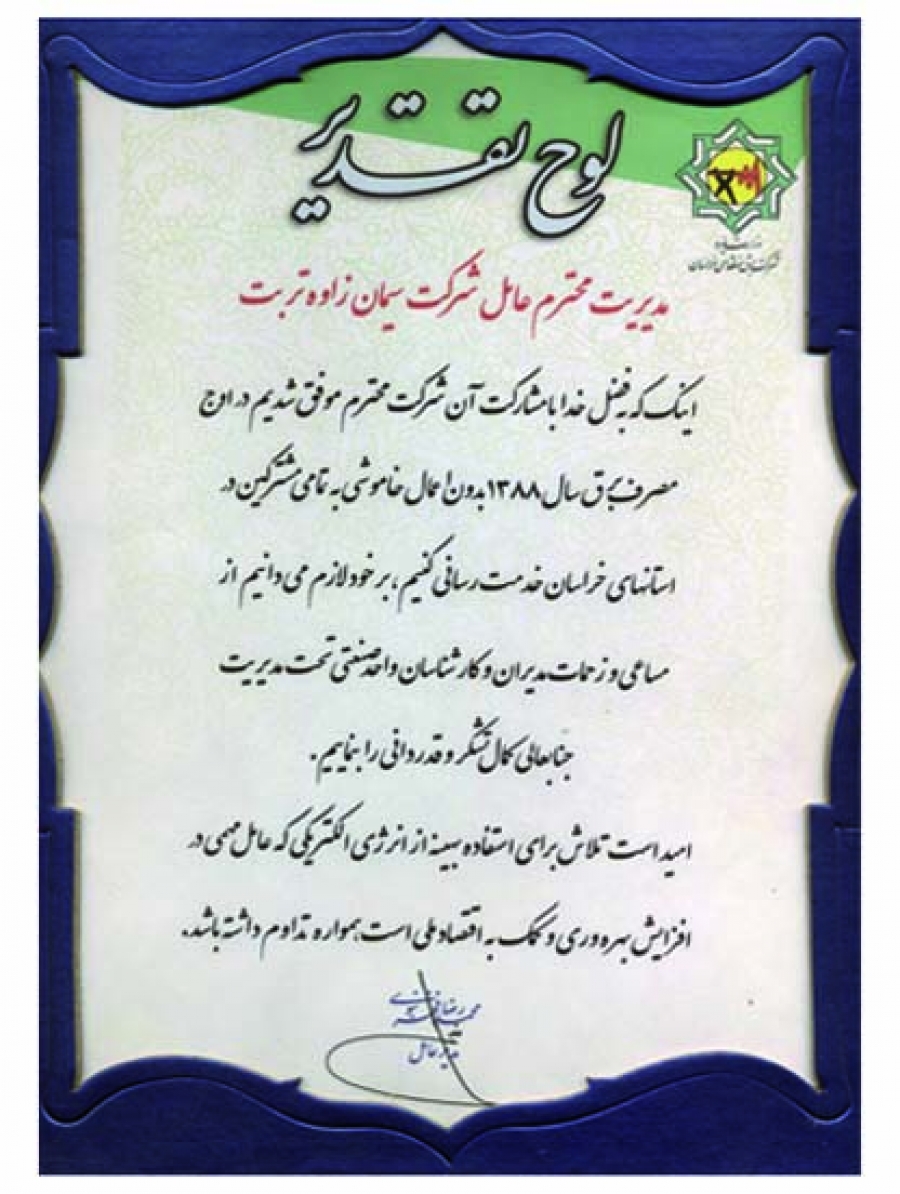 لوح تقدیر
وزارت نیرو
شرکت برق منطقه‌ای خراسان
مدیریت محترم عامل شرکت سیمان زاوه تربت
اینک که به فضل خدا با مشارکت آن شرکت محترم موفق شدیم در اوج
مصرف برق سال ۱۳۸۸ بدون اعمال خاموشی به تمامی مشترکین در
استانهای خراسان خدمت رسانی کنیم، بر خود لازم می دانیم از
مساعی و زحمات مدیران و کارشناسان واحد صنعتی تحت مدیریت
جنابعالی کمال تشکر و قدردانی را بنماییم.
امید است تلاش برای استفاده بهینه از انرژی الکتریکی که عامل مهمی در
افزایش بهره وری و کمک به اقتصاد ملی است همواره تداوم داشته باشد.
مدیر عامل